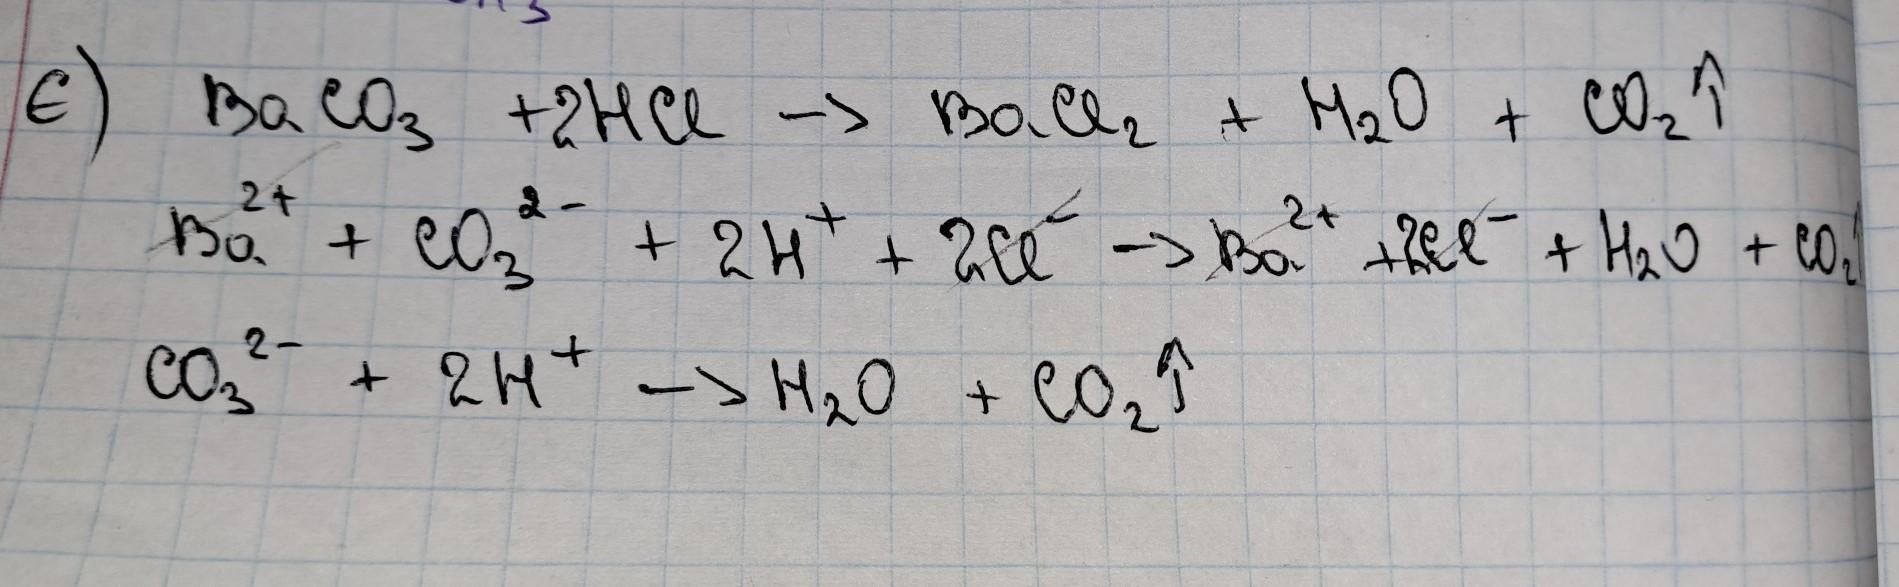 є) BaCO₃ +2HCl -> BaCl₂ + H₂O + CO₂↑
Ba²⁺ + CO₃²⁻ + 2H⁺ + 2Cl⁻ -> Ba²⁺ +2Cl⁻ + H₂O + CO₂↑
CO₃²⁻ + 2H⁺ -> H₂O + CO₂↑